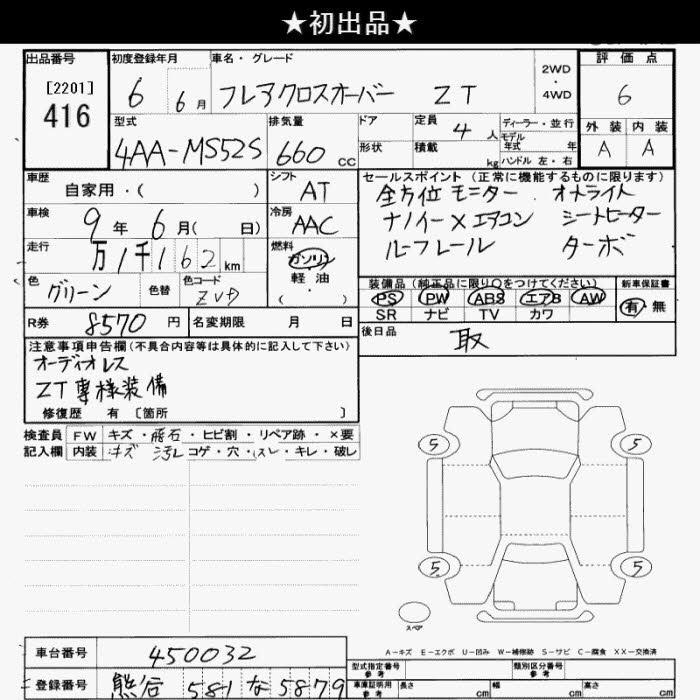 ★初出品★
出品番号 初度登録年月 車名・グレード 2WD ・ 4WD 評価点
[2201]
416 6 6月 フレアクロスオーバー ZT 6
型式 排気量 ドア 定員 4人 ディーラー・並行 外装 内装
モデル年式 年
4AA-MS52S 660 CC 形状 積載 kg ハンドル 左・右 A A
車歴 自家用・( ) シフト AT セールスポイント (正常に機能するものに限ります)
全方位モニター オートライト
車検 9年 6月( 日) 冷房 AAC ナノイーXエアコン シートヒーター
走行 万1千162km 燃料 ガソリン ルーフレール ターボ
軽油
・
( )
色 グリーン 色替 色コード ZVD 装備品 (純正品に限り○をつけてください) 新車保証書
PS PW ABS エアB AW 有・無
SR ナビ TV カワ
R券 8570円 名変期限 月 日 後日品 取
注意事項申告欄(不具合内容等は具体的に記入して下さい)
オーディオレス
ZT専様装備
修復歴 有 〔箇所 〕
検査員 FW キズ・飛石・ヒビ割・リペア跡・×要
記入欄 内装 キズ 汚レ コゲ・穴・スレ・キレ・破レ
5 5
5 5
スペア
A-キズ E-エクボ U-凹み W-補修跡 S-サビ C-腐食 XX-交換済
車台番号 450032 型式指定番号 参考 類別区分番号 参考
登録番号 熊谷 581 な 5879 車庫証明用 参考 長さ cm 幅 cm 高さ cm